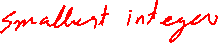 smallest integer